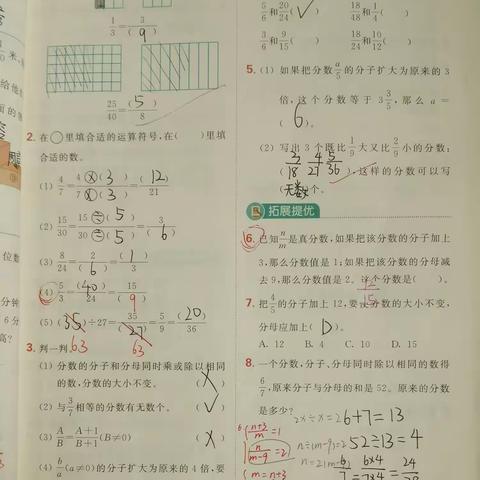 1/3 = 3/(9)
25/40 = (5)/8
2. 在○里填合适的运算符号,在( )里填
合适的数。
(1) 4/7 = 4ⓧ(3)/7ⓧ(3) = (12)/21
(2) 15/30 = 15÷(5)/30÷(5) = 3/(6)
(3) 8/24 = 2/(6) = (1)/3
(4) 5/3 = (40)/24 = 15/(9)
(5) (35)÷27 = 35/(27) = 5/9 = (20)/36
63 63
3. 判一判。
(1) 分数的分子和分母同时乘或除以相同
的数,分数的大小不变。 (X)
(2) 与3/7相等的分数有无数个。 (√)
(3) A/B = (A+1)/(B+1) (B≠0) (X)
(4) b/a (a≠0)的分子扩大为原来的 4 倍,要
5/6和20/24(√) 18/48和1/4( )
3/6和9/15( ) 18/24和10/12( )
5. (1) 如果把分数a/5的分子扩大为原来的 3
倍,这个分数等于 3 3/5,那么 a=
(6)。
(2) 写出 3 个既比1/9大又比2/9小的分数:
3/18 4/27 5/36,这样的分数可以写
(无数)个。
拓展提优
6. 已知n/m是真分数,如果把该分数的分子加上
3,那么分数值是 1;如果把该分数的分母减
去 9,那么分数值是 2。这个分数是( )。
12/15
7. 把4/5的分子加上 12,要使分数的大小不变,
分母应加上(D)。
A. 12 B. 4 C. 10 D. 15
8. 一个分数,分子、分母同时除以相同的数得
6/7,原来分子与分母的和是 52。原来的分数
是多少?
6+7=13
(n+3)/m=1
52÷13=4
n/(m-9)=2
n÷(m-9)=2
m=n+3
6/7 = 6×4/7×4 = 24/28